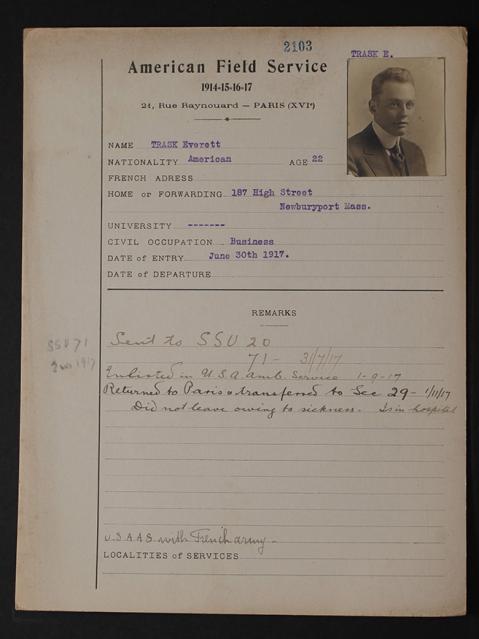 2103
TRASK E.
American Field Service
1914-15-16-17
21, Rue Raynouard — PARIS (XVIe)
NAME TRASK Everett
NATIONALITY American AGE 22
FRENCH ADRESS
HOME or FORWARDING 187 High Street
Newburyport Mass.
UNIVERSITY -------
CIVIL OCCUPATION Business
DATE of ENTRY June 30th 1917.
DATE of DEPARTURE
REMARKS
Sent to SSU 20
SSU 71
71 - 31/7/17
1917
Enlisted in U.S.A. Amb. Service 1-9-17
Returned to Paris & transferred to Sec 29 - 1/11/17
Did not leave owing to sickness. Is in hospital
U.S.A.A.S. with French army -
LOCALITIES of SERVICES